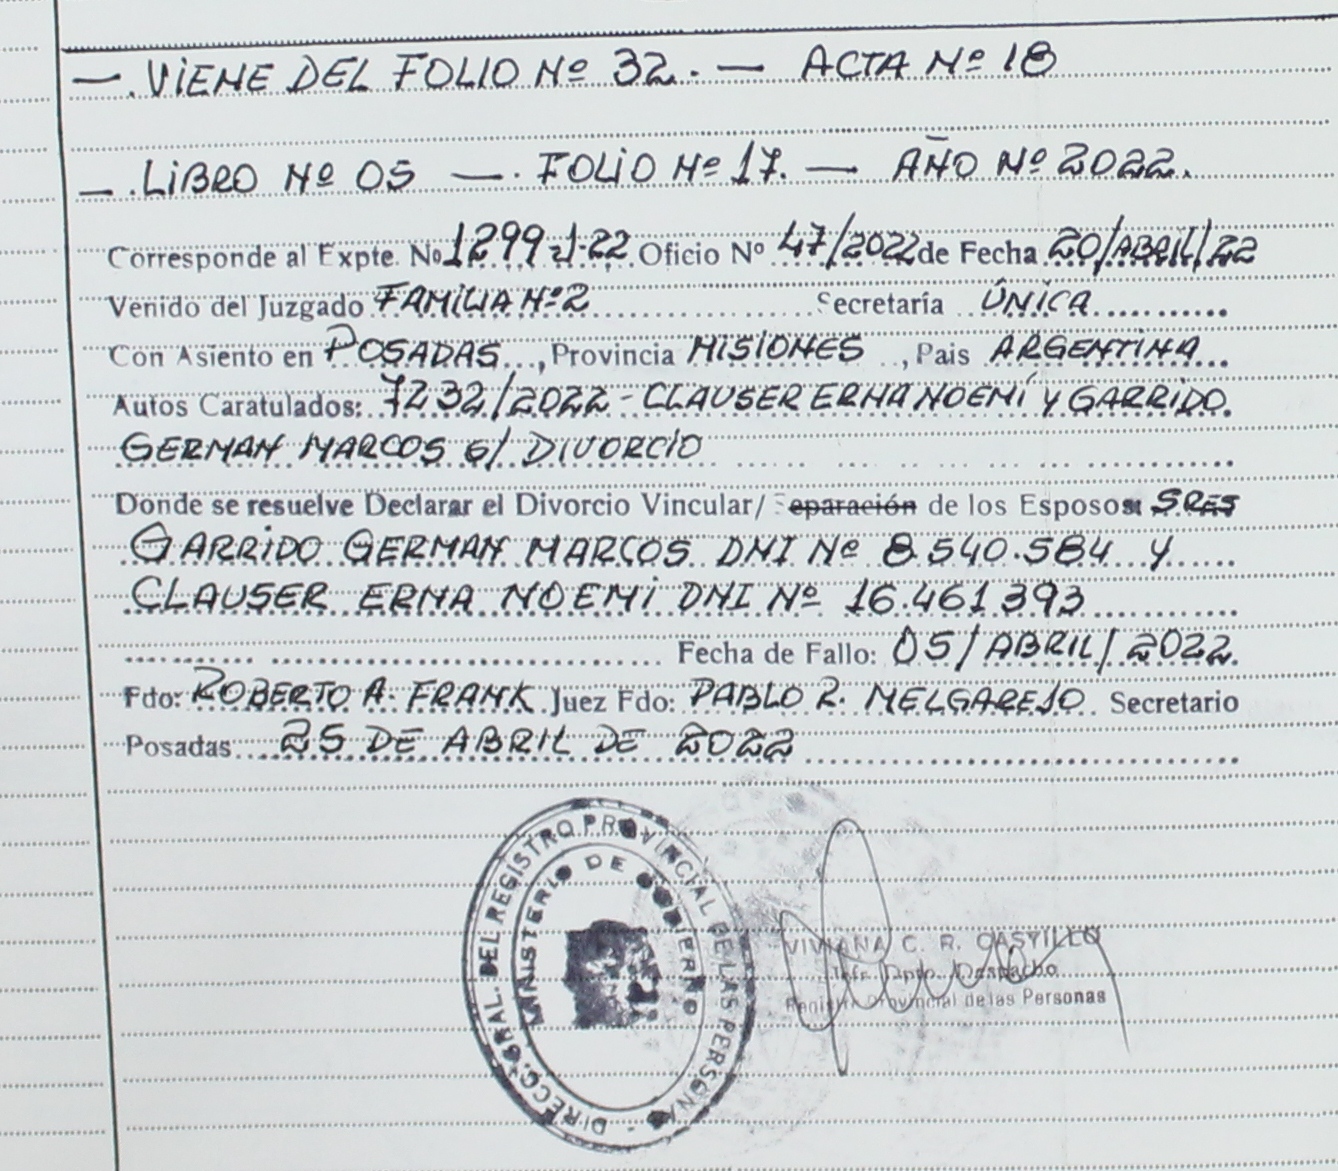 — . VIENE DEL FOLIO Nº 32. — ACTA Nº 18
— . LIBRO Nº 05 — . FOLIO Nº 17. — AÑO Nº 2022.
Corresponde al Expte. No 1299-J-22 Oficio Nº 47/2022 de Fecha 20/ABRIL/22
Venido del Juzgado FAMILIA Nº2 Secretaría ÚNICA
Con Asiento en POSADAS, Provincia MISIONES, Pais ARGENTINA
Autos Caratulados: 7232/2022 - CLAUSER ERNA NOEMÍ Y GARRIDO
GERMAN MARCOS S/ DIVORCIO
Donde se resuelve Declarar el Divorcio Vincular/ Separación de los Esposos: SRES
GARRIDO GERMAN MARCOS DNI Nº 8.540.584 Y
CLAUSER ERNA NOEMI DNI Nº 16.461.393
Fecha de Fallo: 05/ABRIL/2022.
Fdo: ROBERTO A. FRANK Juez Fdo: PABLO R. MELGAREJO Secretario
Posadas 25 DE ABRIL DE 2022
DIRECC. GRAL. DEL REGISTRO PROVINCIAL DE LAS PERSONAS
MINISTERIO DE GOBIERNO
VIVIANA C. R. CASTILLO
Jefe Dpto. Despacho
Registro Provincial de las Personas